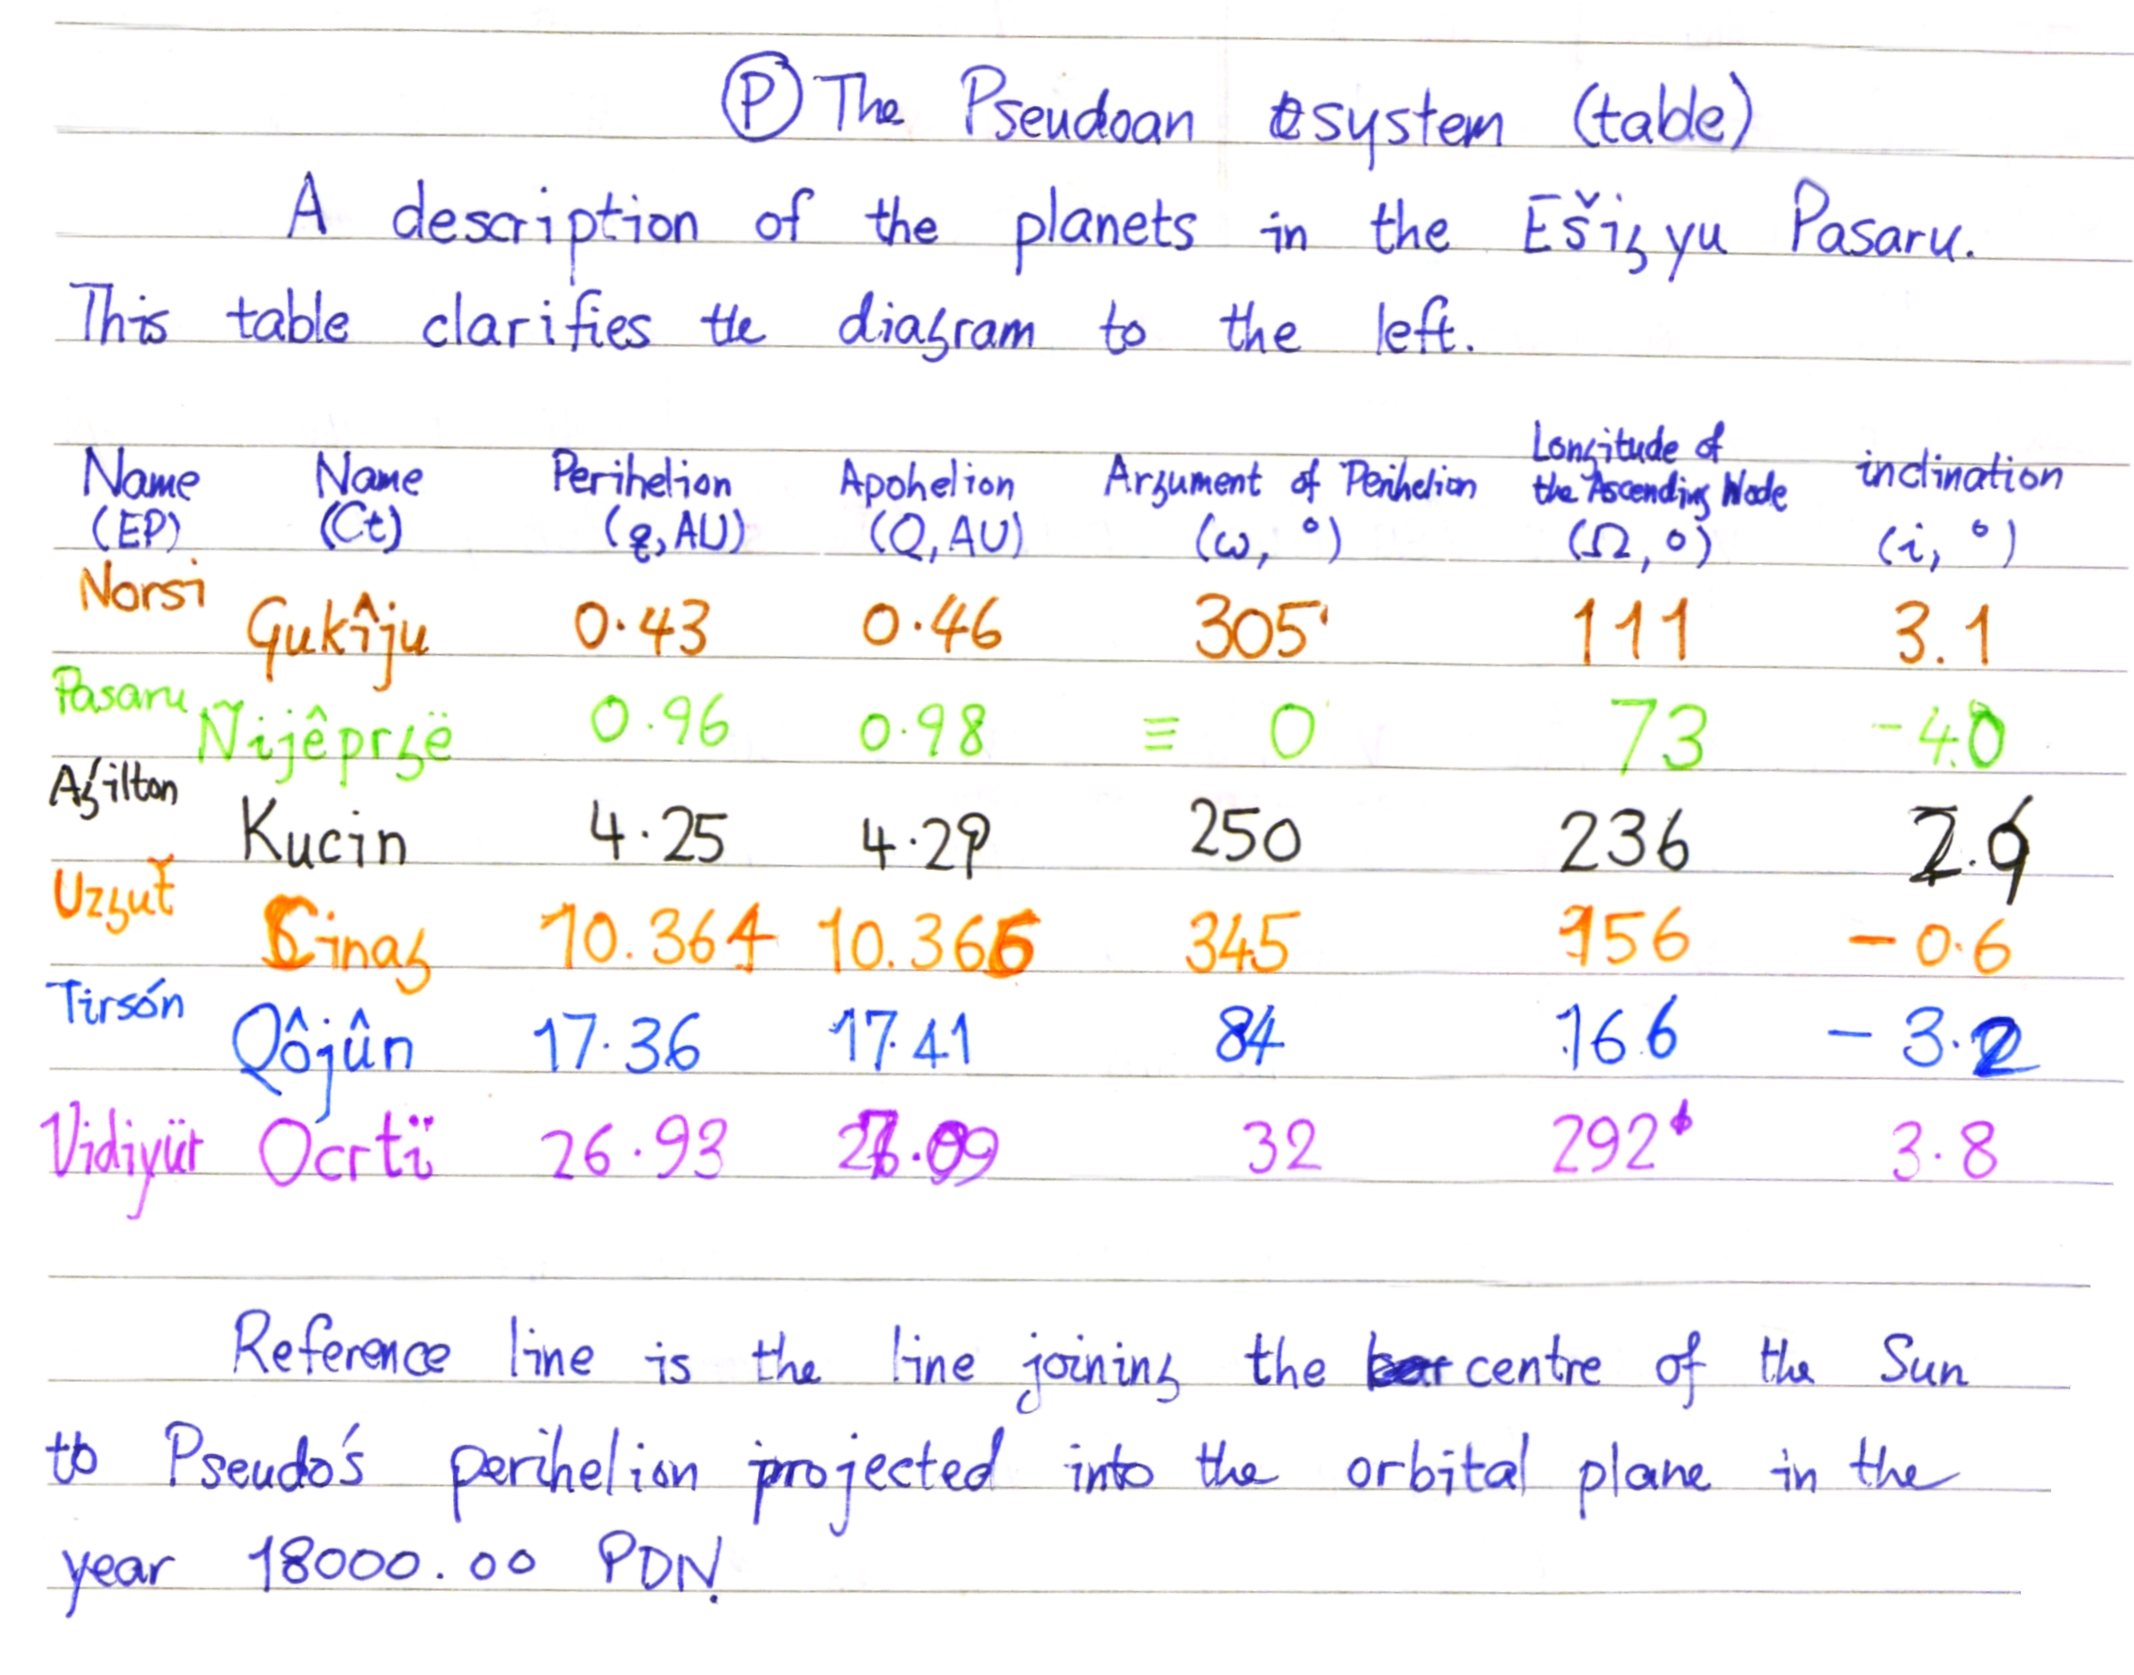 Ⓟ The Pseudoan system (table)
A description of the planets in the Ešigyu Pasaru.
This table clarifies the diagram to the left.
Name (EP) Name (Ct) Perihelion (q, AU) Apohelion (Q, AU) Argument of Perihelion (ω, °) Longitude of the Ascending Node (Ω, °) inclination (i, °)
Norsi Gukîju 0.43 0.46 305 111 3.1
Pasaru Ñijêprgë 0.96 0.98 ≡ 0 73 -4.0
Aǵilton Kucin 4.25 4.29 250 236 2.9
Uzguť Cinag 10.364 10.366 345 156 -0.6
Tirsón Qôjûn 17.36 17.41 84 166 -3.2
Vidiyür Ocrtï 26.93 .09 32 292 3.8
Reference line is the line joining the centre of the Sun
to Pseudo's perihelion projected into the orbital plane in the
year 18000.00 PDN.